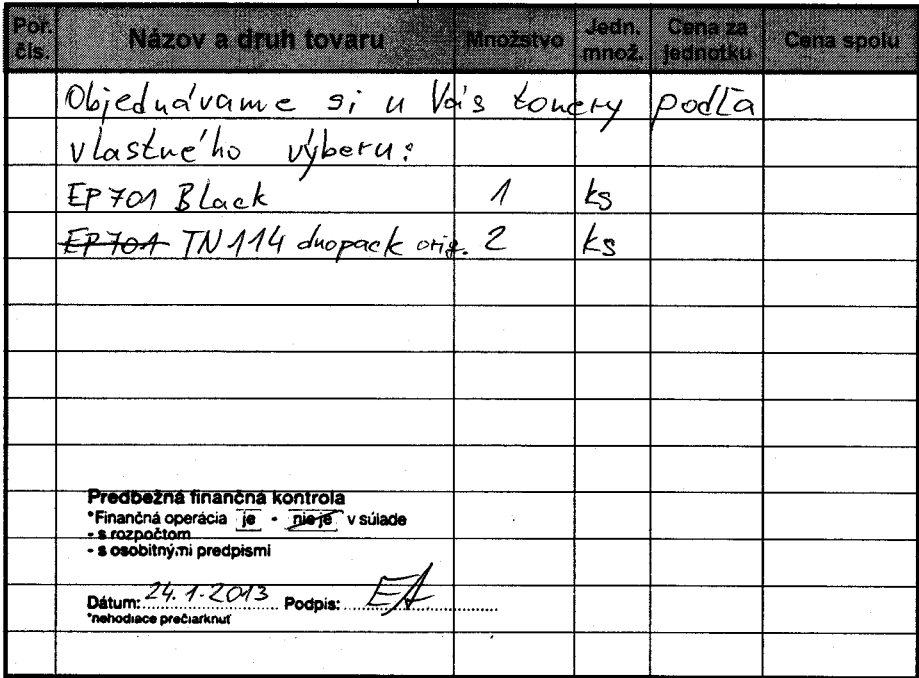 Por. čís. Názov a druh tovaru Množstvo Jedn. množ. Cena za jednotku Cena spolu
Objednávame si u Vás tonery podľa
vlastného výberu:
EP701 Black 1 ks
EP701 TN114 duopack orig. 2 ks
Predbežná finančná kontrola
*Finančná operácia je - nie je v súlade
- s rozpočtom
- s osobitnými predpismi
Dátum: 24.1.2013 Podpis: EA
*nehodiace prečiarknuť